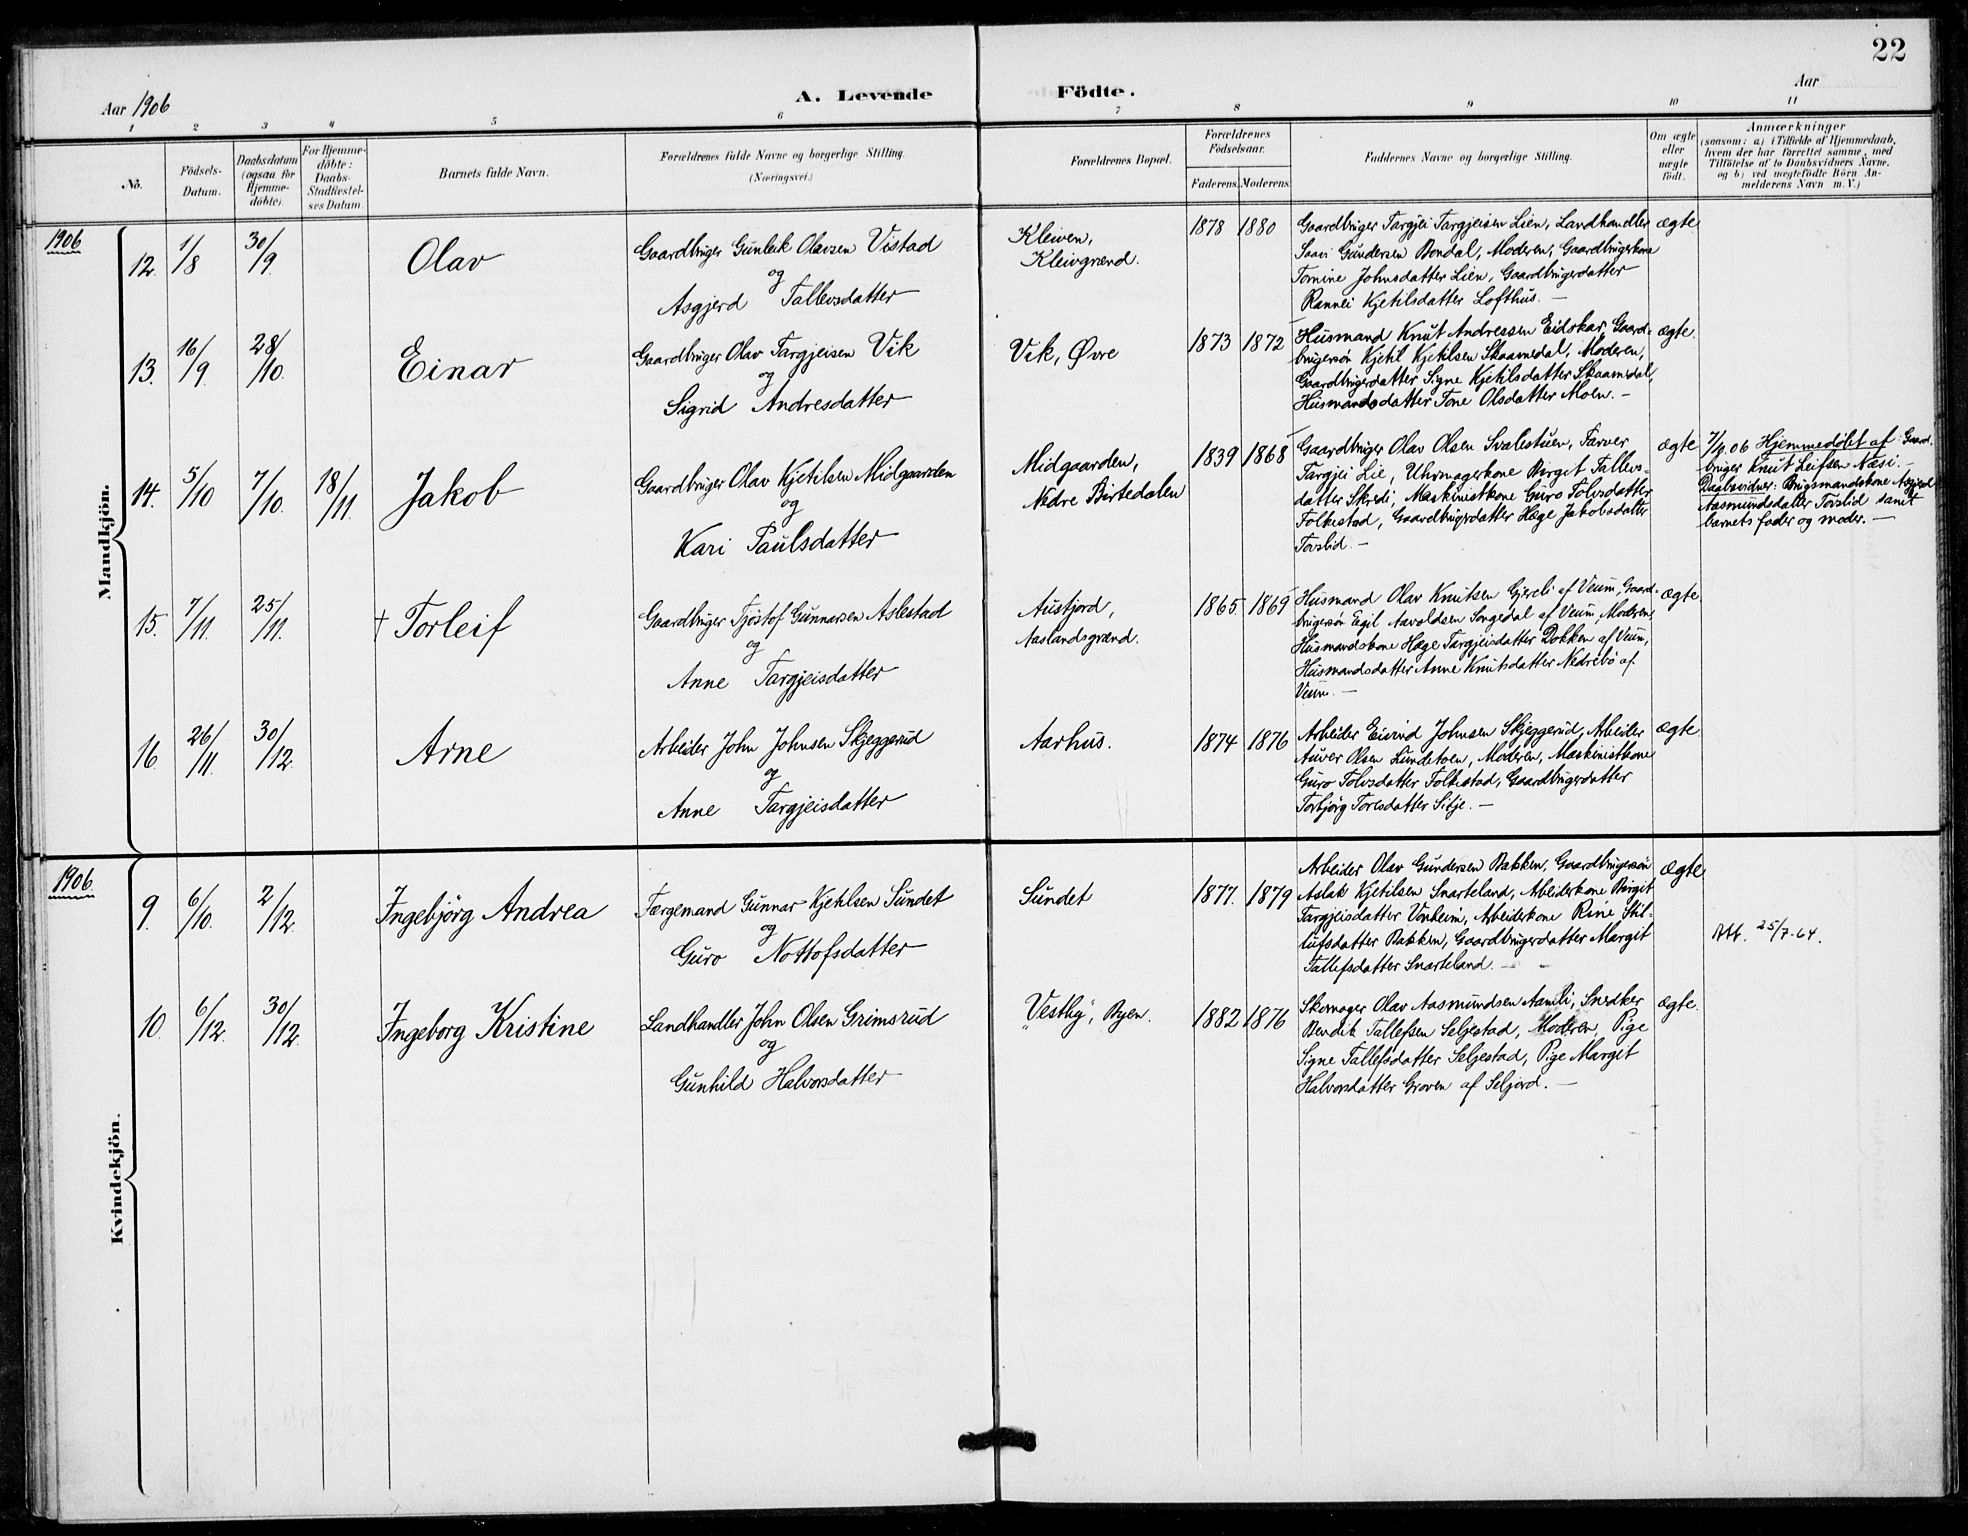 22
Aar 1906
A. Levende Födte.
Aar
1 2 3 4 5 6 7 8 9 10 11
No.
Födsels-
Datum.
Daabsdatum
(ogsaa for
Hjemme-
döbte).
For Hjemme-
döbte:
Daabs-
Stadfæstel-
ses Datum.
Barnets fulde Navn.
Forældrenes fulde Navne og borgerlige Stilling.
(Næringsvei.)
Forældrenes Bopæl.
Forældrenes
Födselsaar.
Faderens. Moderens.
Faddernes Navne og borgerlige Stilling.
Om ægte
eller
uægte
födt.
Anmærkninger
(saasom: a) i Tilfælde af Hjemmedaab,
hvem der har forrettet samme, med
Tilföielse af to Daabsvidners Navne,
og b) ved uægtefödte Börn An-
melderens Navn m. V.)
Mandkjön.
1906
12. 1/8 30/9. Olav
Gaardbruger Gunleik Olavsen Vistad
og
Asgjerd Tallevsdatter
Kleiven,
Kleivgrænd.
1878 1880
Gaardbruger Targjei Targjeisen Lien, Landhandler
Gundersen Bondal, Moderen, Gaardbrugerkone
Tomine Johnsdatter Lien, Gaardbrugerdatter
Rannei Kjetilsdatter Lofthus. —
ægte
13. 16/9. 28/10. Einar
Gaardbruger Olav Targjeisen Vik
og
Sigrid Andresdatter
Vik, Øvre
1873 1872
Husmand Knut Andressen Eidskar, Gaard-
brugersön Kjetil Kjetilsen Skaamedal, Moderen,
Gaardbrugerdatter Signe Kjetilsdatter Skaamedal,
Husmandsdatter Tone Olsdatter Moen. —
ægte.
14. 5/10 7/10. 18/11. Jakob
Gaardbruger Olav Kjetilsen Midgaarden
og
Kari Paulsdatter
Midgaarden,
Nedre Birtedalen
1839 1868
Gaardbruger Olav Olsen Svalestuen, Farver
Targjei Lie, Uhrmagerkone Birgit Tallevs-
datter Skredi, Maskinistkone Guro Tolvsdatter
Folkestad, Gaardbrugerdatter Hæge Jakobsdatter
Torslid. —
ægte
7/9.06 Hjemmedöbt af Gaard-
bruger Knut Leifsen Næsi. —
Daabsvidner: Brugsmandskone Asgjerd
Aasmundsdatter Torslid samt
barnets fader og moder. —
15. 7/11. 25/11. † Torleif
Gaardbruger Tjöstof Gunnarsen Aslestad
og
Anne Targjeisdatter
Austjord,
Aaslandsgrænd.
1865. 1869
Husmand Olav Knutsen Gjereli af Veum, Gaard-
brugersön Egil Aavoldsen Songedal af Veum, Moderen,
Husmandskone Hæge Targjeisdatter Dokken af Veum,
Husmandsdatter Anne Knutsdatter Nedrebö af
Veum. —
ægte.
16. 26/11. 30/12. Arne
Arbeider John Johnsen Skjeggerud
og
Anne Targjeisdatter
Aarhus.
1874 1876
Arbeider Eivind Johnsen Skjeggerud, Arbeider
Auver Olsen Lundetoen, Moderen, Maskinistkone
Guro Tolvsdatter Folkestad, Gaardbrugerdatter
Torbjörg Toresdatter Sitje. —
ægte
Kvindekjön.
1906.
9. 6/10. 2/12. Ingebjörg Andrea
Færgemand Gunnar Kjetilsen Sundet
og
Guro Nottofsdatter
Sundet
1877. 1879
Arbeider Olav Gundersen Bakken, Gaardbrugersön
Aslak Kjetilsen Snarteland, Arbeiderkone Birgit
Targjeisdatter Vonheim, Arbeiderkone Rine Stil-
lufsdatter Bakken, Gaardbrugerdatter Margit
Tallefsdatter Snarteland. —
ægte
Att. 25/7-64.
10. 6/12. 30/12. Ingeborg Kristine
Landhandler John Olsen Grimsrud
og
Gunhild Halvorsdatter
"Vestly", Byen.
1882 1876
Skomager Olav Aasmundsen Aamli, Snedker
Bendik Tallefsen Seljestad, Moderen, Pige
Signe Tallefsdatter Seljestad, Pige Margit
Halvorsdatter Groven af Seljord. —
ægte.